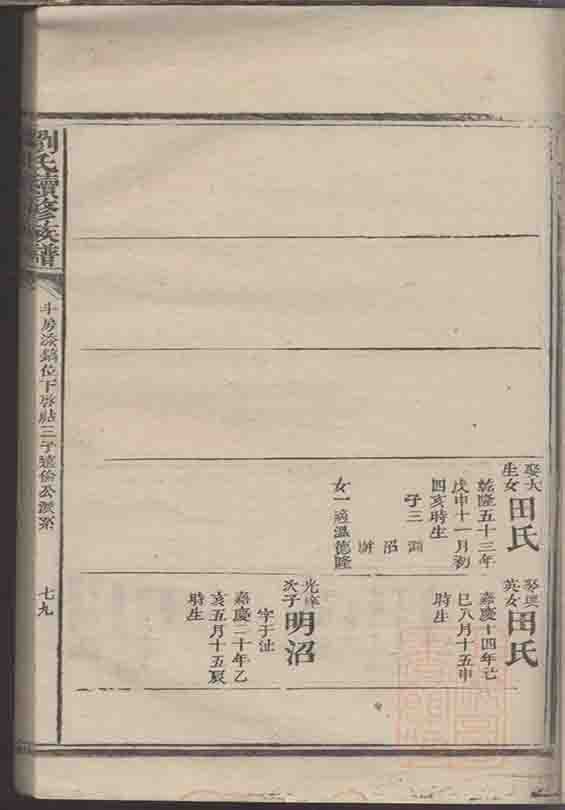 劉氏續修族譜
斗房添鎬位下啓點三子遠倫公派系
七九
娶大
生女
田氏
乾隆五十三年
戊申十一月初
四亥時生
子三
淵
沼
女一適溫德隆
娶興
英女
田氏
嘉慶十四年己
巳八月十五申
時生
次子
明沼
字于沚
嘉慶二十年乙
亥五月十五辰
時生